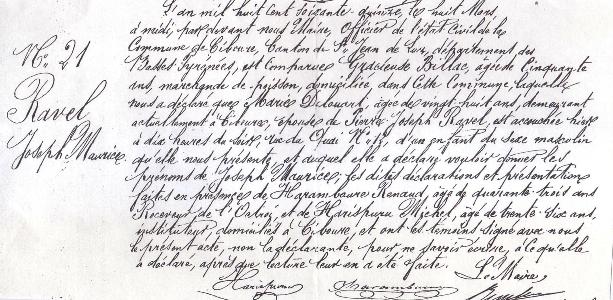 N.° 21
Ravel
Joseph Maurice
L'an mil huit cent soixante-quinze, le huit Mars,
à midi, par devant nous Maire, Officier de l'état civil de la
Commune de Ciboure, Canton de St Jean de Luz, département des
Basses Pyrénées, est comparue Gracieuse Billac, âgée de Cinquante
ans, marchande de poisson, domiciliée dans cette Commune, laquelle
nous a déclaré que Marie Delouart, âgée de vingt-huit ans, demeurant
actuellement à Ciboure, épouse de Pierre Joseph Ravel, est accouchée hier
à dix heures du soir, rue du Quai N.° 12, d'un enfant du sexe masculin
qu'elle nous présente, et auquel elle a déclaré vouloir donner les
prénoms de Joseph Maurice, les dites déclarations et présentation
faites en présence de Haramboure Renaud, âgé de quarante-trois ans
Receveur de l'Octroi, et de Harispuru Michel, âgé de trente-six ans,
instituteur, domiciliés à Ciboure, et ont les témoins signé avec nous
le présent acte, non la déclarante, pour ne savoir écrire, à ce qu'elle
a déclaré, après que lecture leur en a été faite.
Le Maire,
Harispuru Haramboure